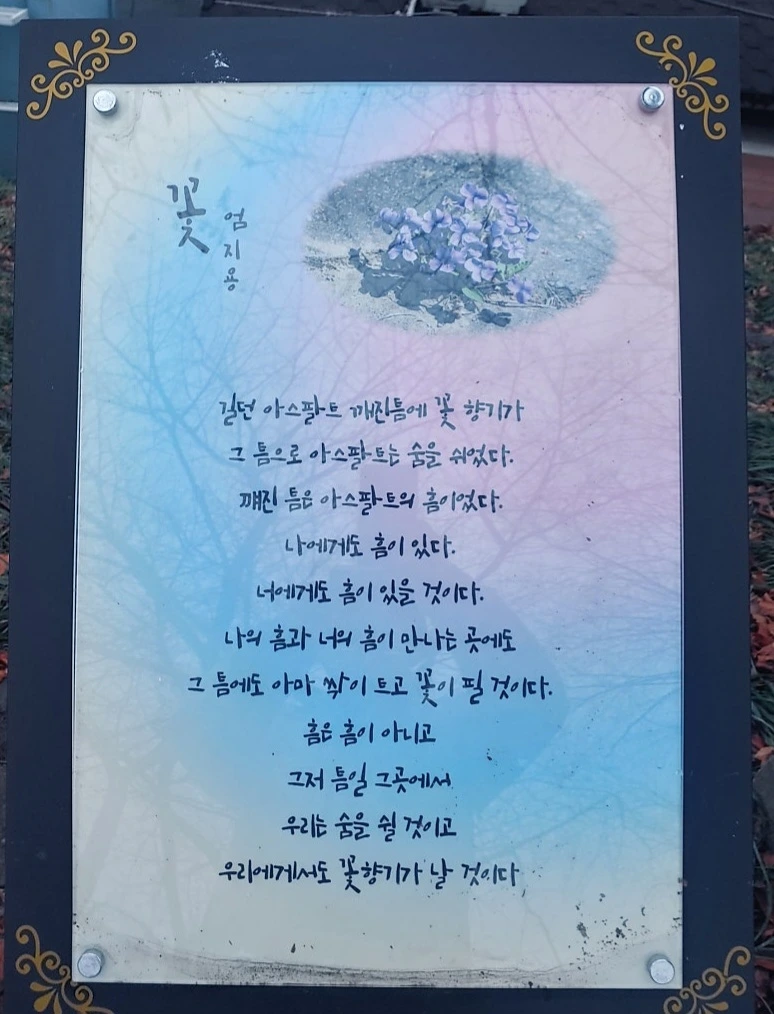 꽃
엄지용
길던 아스팔트 깨진틈에 꽃 향기가
그 틈으로 아스팔트는 숨을 쉬었다.
깨진 틈은 아스팔트의 흠이었다.
나에게도 흠이 있다.
너에게도 흠이 있을 것이다.
나의 흠과 너의 흠이 만나는 곳에도
그 틈에도 아마 싹이 트고 꽃이 필 것이다.
흠은 흠이 아니고
그저 틈일 그곳에서
우리는 숨을 쉴 것이고
우리에게서도 꽃향기가 날 것이다